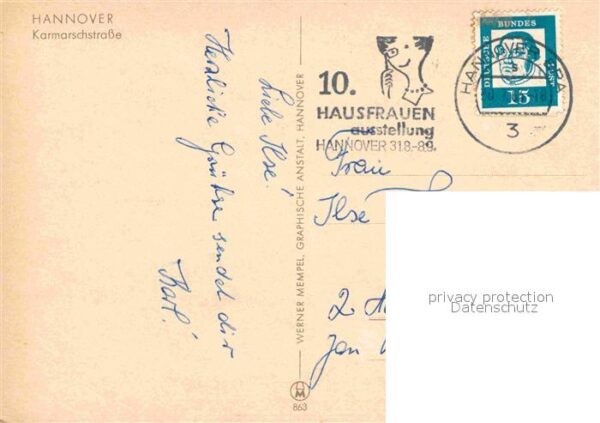 HANNOVER
Karmarschstraße
Liebe Ilse!
Herzliche Grüße sendet dir
Karl!
WERNER MEMPEL, GRAPHISCHE ANSTALT, HANNOVER
HM
863
10.
HAUSFRAUEN
ausstellung
HANNOVER 31.8.-8.9.
DEUTSCHE BUNDES POST
15
HANNOVER
3
Frau
Ilse
2
privacy protection
Datenschutz